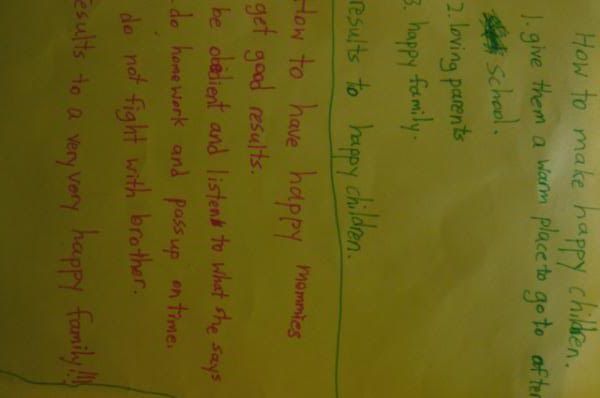 How to make happy children.
1. give them a warm place to go to after
school.
2. loving parents
3. happy family.
results to happy children.
How to have happy mommies
get good results.
be obedient and listen to what she says
do homework and pass up on time.
do not fight with brother.
esults to a very very happy family!!!